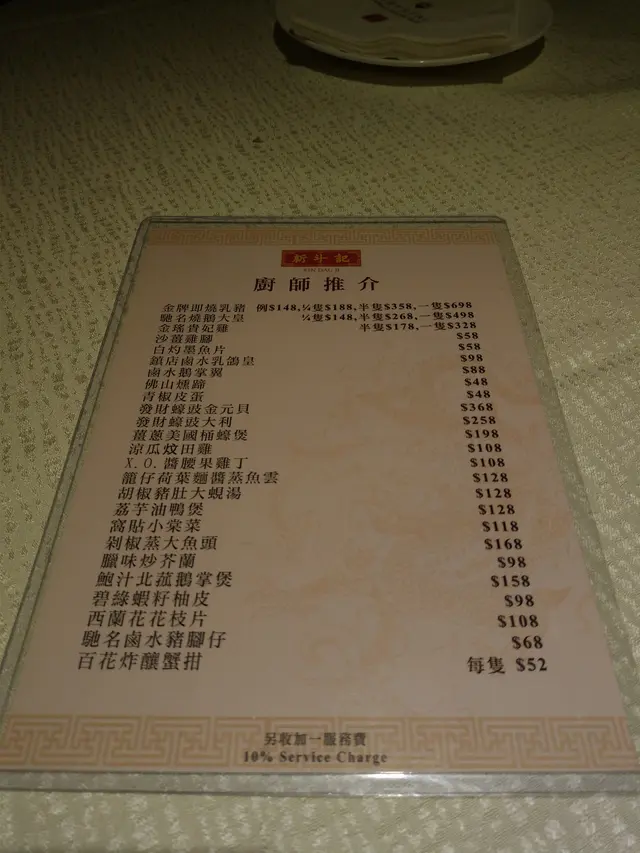 新斗記
XIN DAU JI
廚師推介
金牌即燒乳豬 例$148,¼隻$188,半隻$358,一隻$698
馳名燒鵝大皇 ¼隻$148,半隻$268,一隻$498
金瑤貴妃雞 半隻$178,一隻$328
沙薑雞腳 $58
白灼墨魚片 $58
鎮店鹵水乳鴿皇 $98
鹵水鵝掌翼 $88
佛山燻蹄 $48
青椒皮蛋 $48
發財蠔豉金元貝 $368
發財蠔豉大利 $258
薑蔥美國桶蠔煲 $198
涼瓜炆田雞 $108
X.O.醬腰果雞丁 $108
籠仔荷葉麵醬蒸魚雲 $128
胡椒豬肚大蜆湯 $128
荔芋油鴨煲 $128
窩貼小棠菜 $118
剁椒蒸大魚頭 $168
臘味炒芥蘭 $98
鮑汁北菰鵝掌煲 $158
碧綠蝦籽柚皮 $98
西蘭花花枝片 $108
馳名鹵水豬腳仔 $68
百花炸釀蟹拑 每隻 $52
另收加一服務費
10% Service Charge